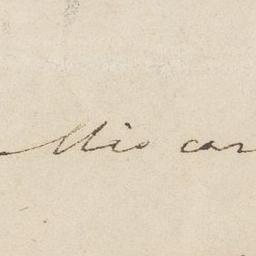 Mio car